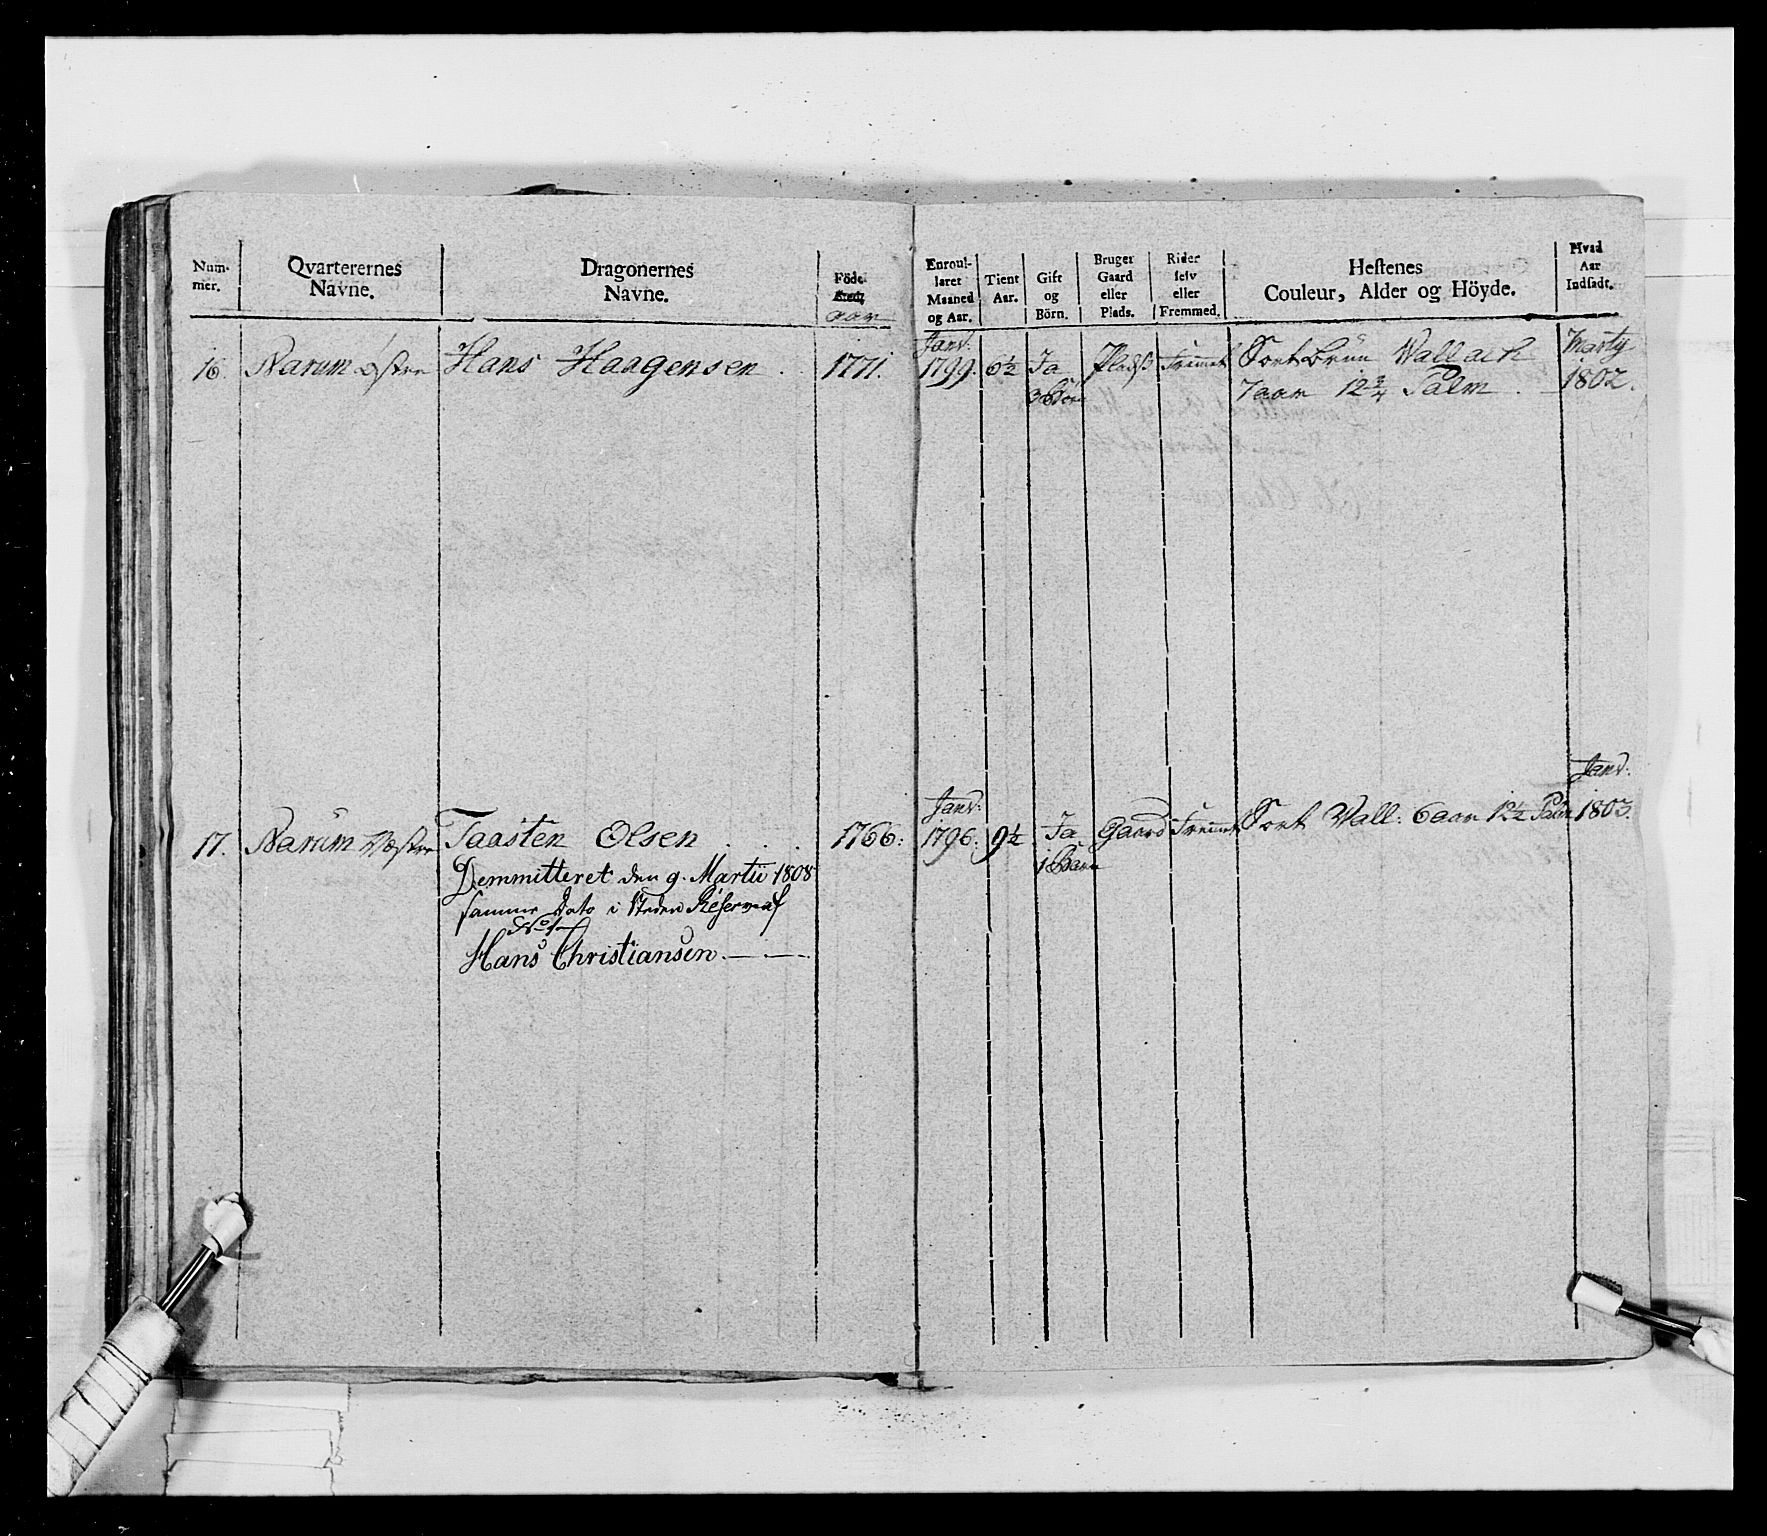 Num-
mer.
Qvarterernes
Navne.
Dragonernes
Navne.
Föde
aar
Enroul-
laret
Maaned
og Aar.
Tient
Aar.
Gift
og
Börn.
Bruger
Gaard
eller
Plads.
Rider
selv
eller
Fremmed.
Hestenes
Couleur, Alder og Höyde.
Hvad
Aar
Indsadt.
16. Narum Østre Hans Haagensen . 1771. Janv: 1799. 6½ Ja Pladß Fremet Sort brun Wallack Marty
3 Börn 7 aar 12¾ Palm . 1802.
17. Narum Vestre Taasten Olsen . . . 1766: Janv: 1796. 9½ Ja Gaard Fremet Sort Vall: 6 aar 12½ Palm Janv: 1803.
1 Barn
Demmitteret den 9. Martii 1808
samme Dato i Steden Reserve af
Hans Christiansen. — —